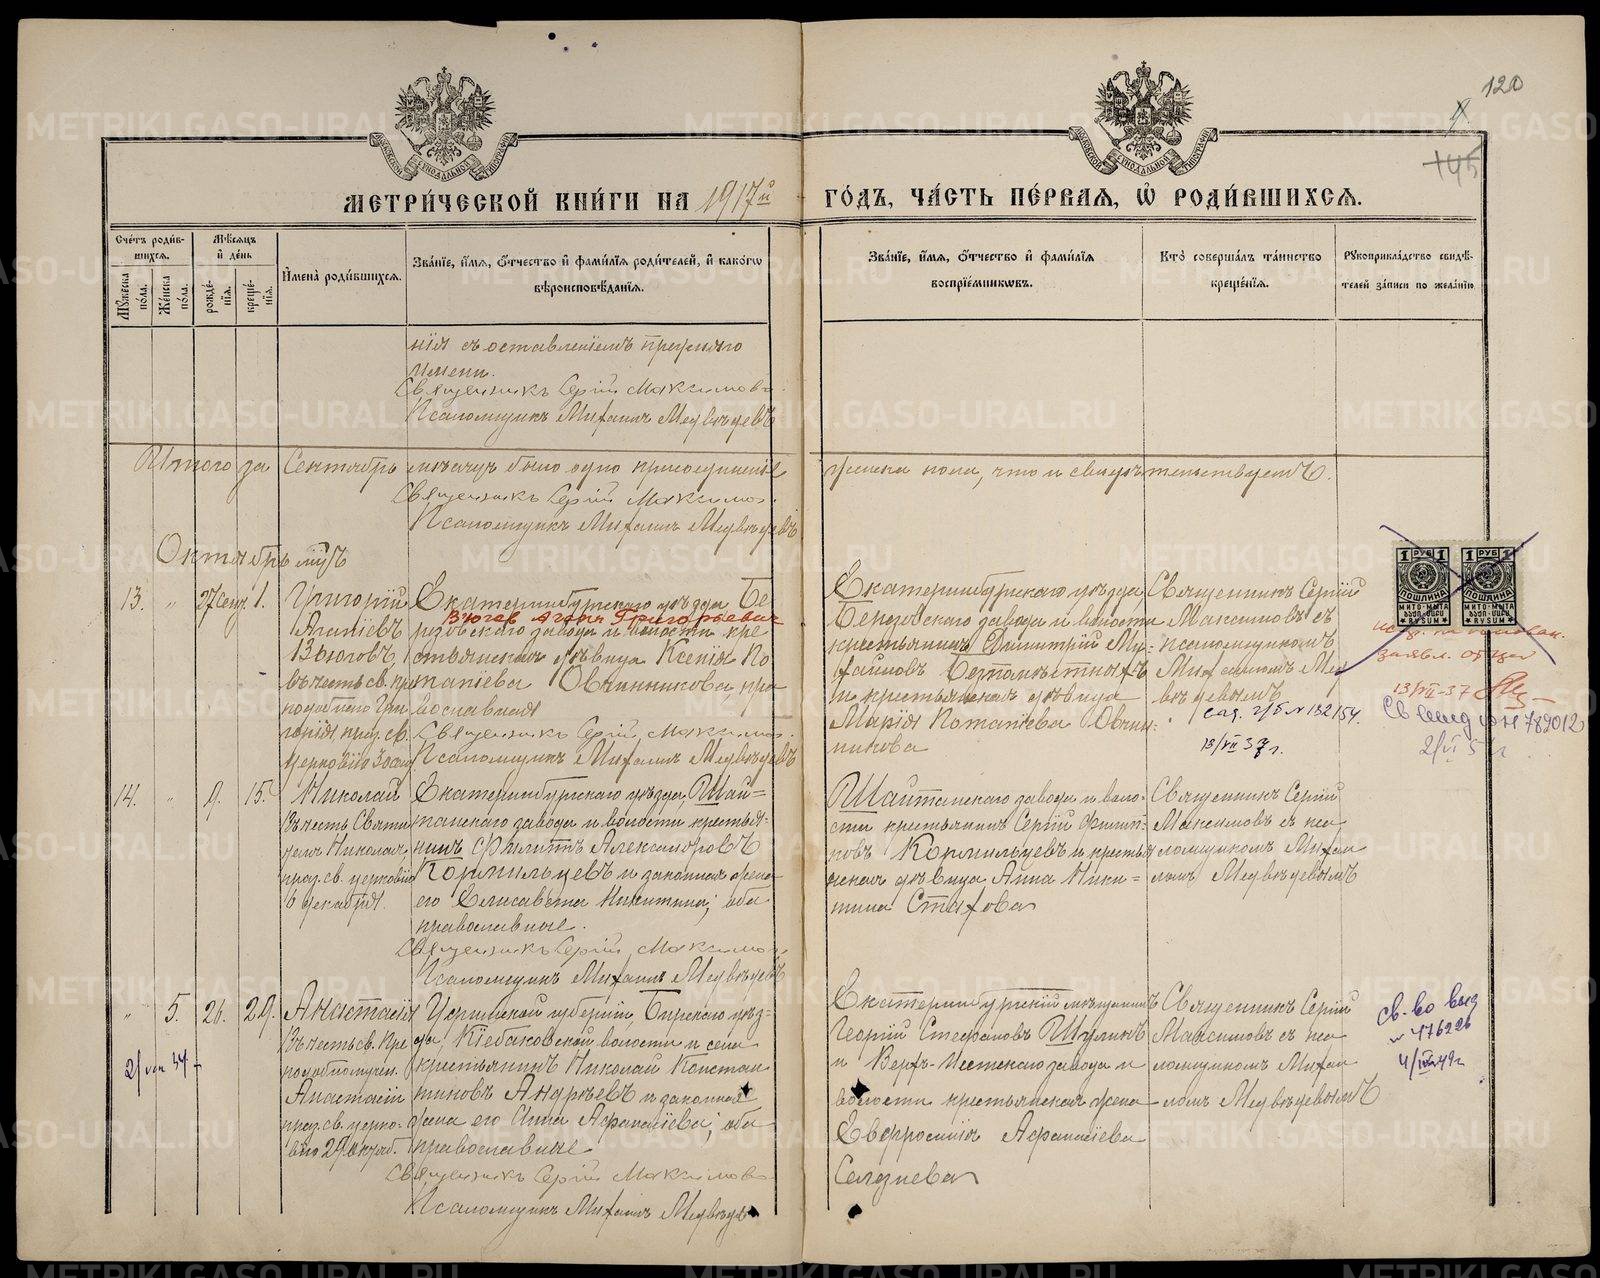 120
145
МЕТРИ́ЧЕСКОЙ КНИ́ГИ НА 1917й ГО́ДЪ, ЧА́СТЬ ПЕ́РВАЯ, Ѡ҆ РОДИ́ВШИХСЯ.
Сче́тъ роди́в-
шихся.
Му́жеска
по́ла.
Же́нска
по́ла.
Мѣ́сяцъ
и҆ де́нь
рожде́-
нїя.
креще́-
нїя.
И҆мена̀ роди́вшихся.
Зва́нїе, и҆́мя, ѻ҆́тчество и҆ фами́лїя роди́телей, и҆ како́гѡ
вѣроисповѣ́данїя.
Зва́нїе, и҆́мя, ѻ҆́тчество и҆ фами́лїя
воспрїе́мниковъ.
Кто̀ соверша́лъ та́инство
креще́нїя.
Рꙋкоприкла́дство свидѣ́-
телей за́писи по жела́нїю
нія съ оставленіемъ прежняго
имени.
Священникъ Сергій Максимовъ.
Псаломщикъ Михаилъ Медвѣдевъ
Итого за Сентябрь мѣсяцъ было одно присоединеніе женска пола, что и свидѣтельствуемъ.
Священникъ Сергій Максимов.
Псаломщикъ Михаилъ Медвѣдевъ
Октябрь мцъ
13. " 27 сент. 1.
Григорій
Агапіевъ
Вьюговъ
въ честь св. пре
подобнаго Гри
горія, праз. св.
церковію
Екатеринбургскаго уѣзда Бе
Вьюгов Агап Григорьевич
резовскаго завода и волости кре
стьянская дѣвица Ксенія По
тапіева Овчинникова пра
вославная
Священникъ Сергій Максимов.
Псаломщикъ Михаилъ Медвѣдевъ
Екатеринбургскаго уѣзда
Березовскаго завода и волости
крестьянинъ Димитрій Ми-
хаиловъ
и крестьянская дѣвица
Марія Потапіева Овчин-
никова
Священникъ Сергій
Максимовъ съ
псаломщикомъ
Михаиломъ Мед
вѣдевымъ
№ 132154.
13/VII 37 г.
1 РУБ 1
ПОШЛИНА
МИТО-МЫТА
RVSUM
1 РУБ 1
ПОШЛИНА
МИТО-МЫТА
RVSUM
заявл. отца
13/VII-37
№ 789012
14. " 9. 15.
Николай
Въ честь Святи
теля Николая,
праз. св. церковію
6 декабря.
Екатеринбургскаго уѣзда, Шай=
танскаго завода и волости крестья-
нинъ Филиппъ Александровъ
Кормильцевъ и законная жена
его Елисавета Никитина; оба
православные.
Священникъ Сергій Максимов
Псаломщикъ Михаилъ Медвѣдевъ
Шайтанскаго завода и воло-
сти крестьянинъ Сергій Филип-
повъ Кормильцевъ и крестья
нская дѣвица Анна Ники=
тина Стахова
Священникъ Сергій
Максимовъ съ пса
ломщикомъ Михаи
ломъ Медвѣдевымъ
" 5. 26. 29.
Анастасія
Въ честь св. Пре
подобномучен.
Анастасіи
праз. св. церко-
вію 29 октяб.
Уфимской губерніи, Бирскаго уѣз-
да, Кіебаковской волости и села
крестьянинъ Николай Констан
тиновъ Андреевъ и законная
жена его Анна Афанасіева; оба
православные
Священникъ Сергій Максимовъ
Псаломщикъ Михаилъ Медвѣдев
Екатеринбургскій мѣщанинъ
Георгій Стефановъ Шулинъ
и Верх-Исетскаго завода и
волости крестьянская жена
Евфросинія Афанасіева
Селезнева
Священникъ Сергій
Максимовъ съ пса
ломщикомъ Михаи
ломъ Медвѣдевымъ
св-во выд
METRIKI.GASO-URAL.RU